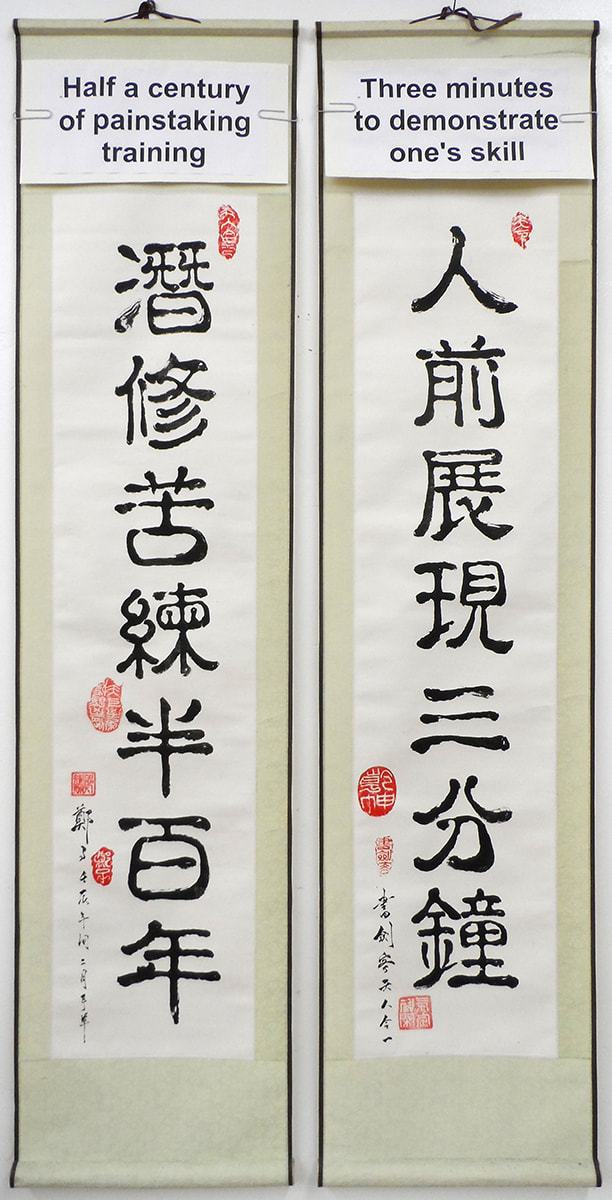 Half a century
of painstaking
training
潛修苦練半百年
鄭子壬辰年
Three minutes
to demonstrate
one's skill
人前展現三分鐘
書劍客天人合一